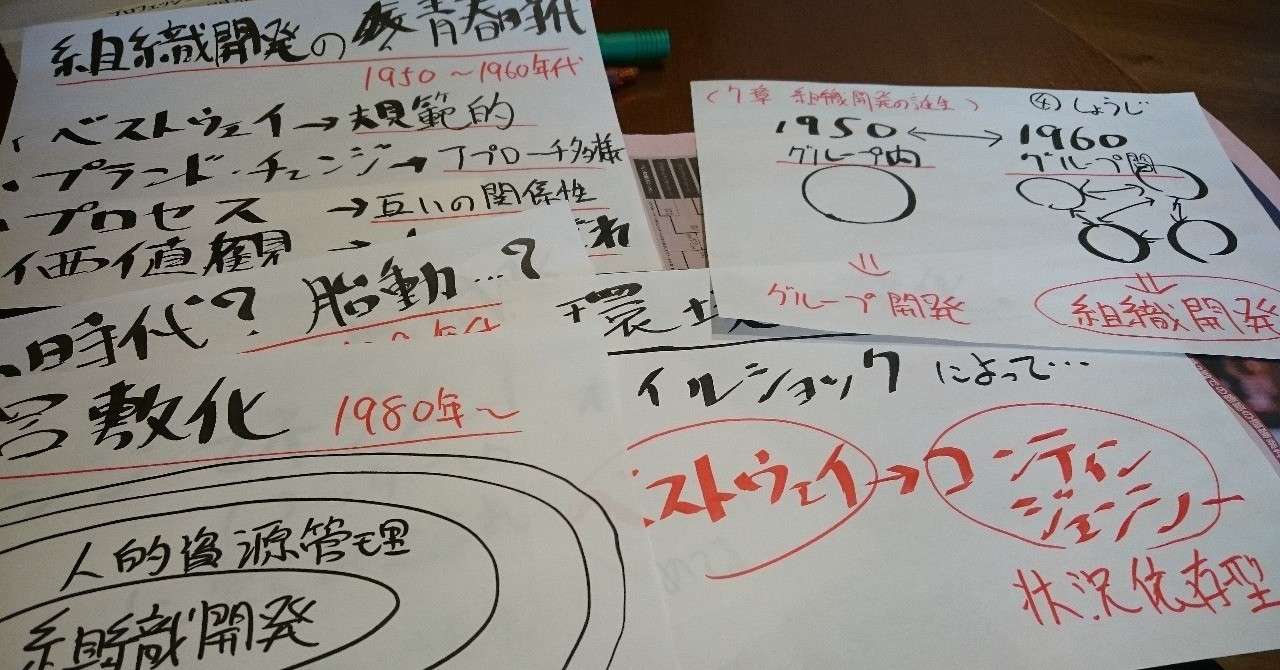 組織開発の青春時代
1950〜1960年代
ベストウェイ→規範的
・プランド・チェンジ→アプローチ多様
・プロセス →互いの関係性
価値観→
時代? 胎動…?
敷化 1980年〜
人的資源管理
組織開発
(7章 組織開発の誕生) ④しょうじ
1950 ⟷ 1960
グループ内 グループ間
グループ開発 組織開発
環境
イルショックによって…
ストウェイ→コンティン
ジェンシー
状況依存型